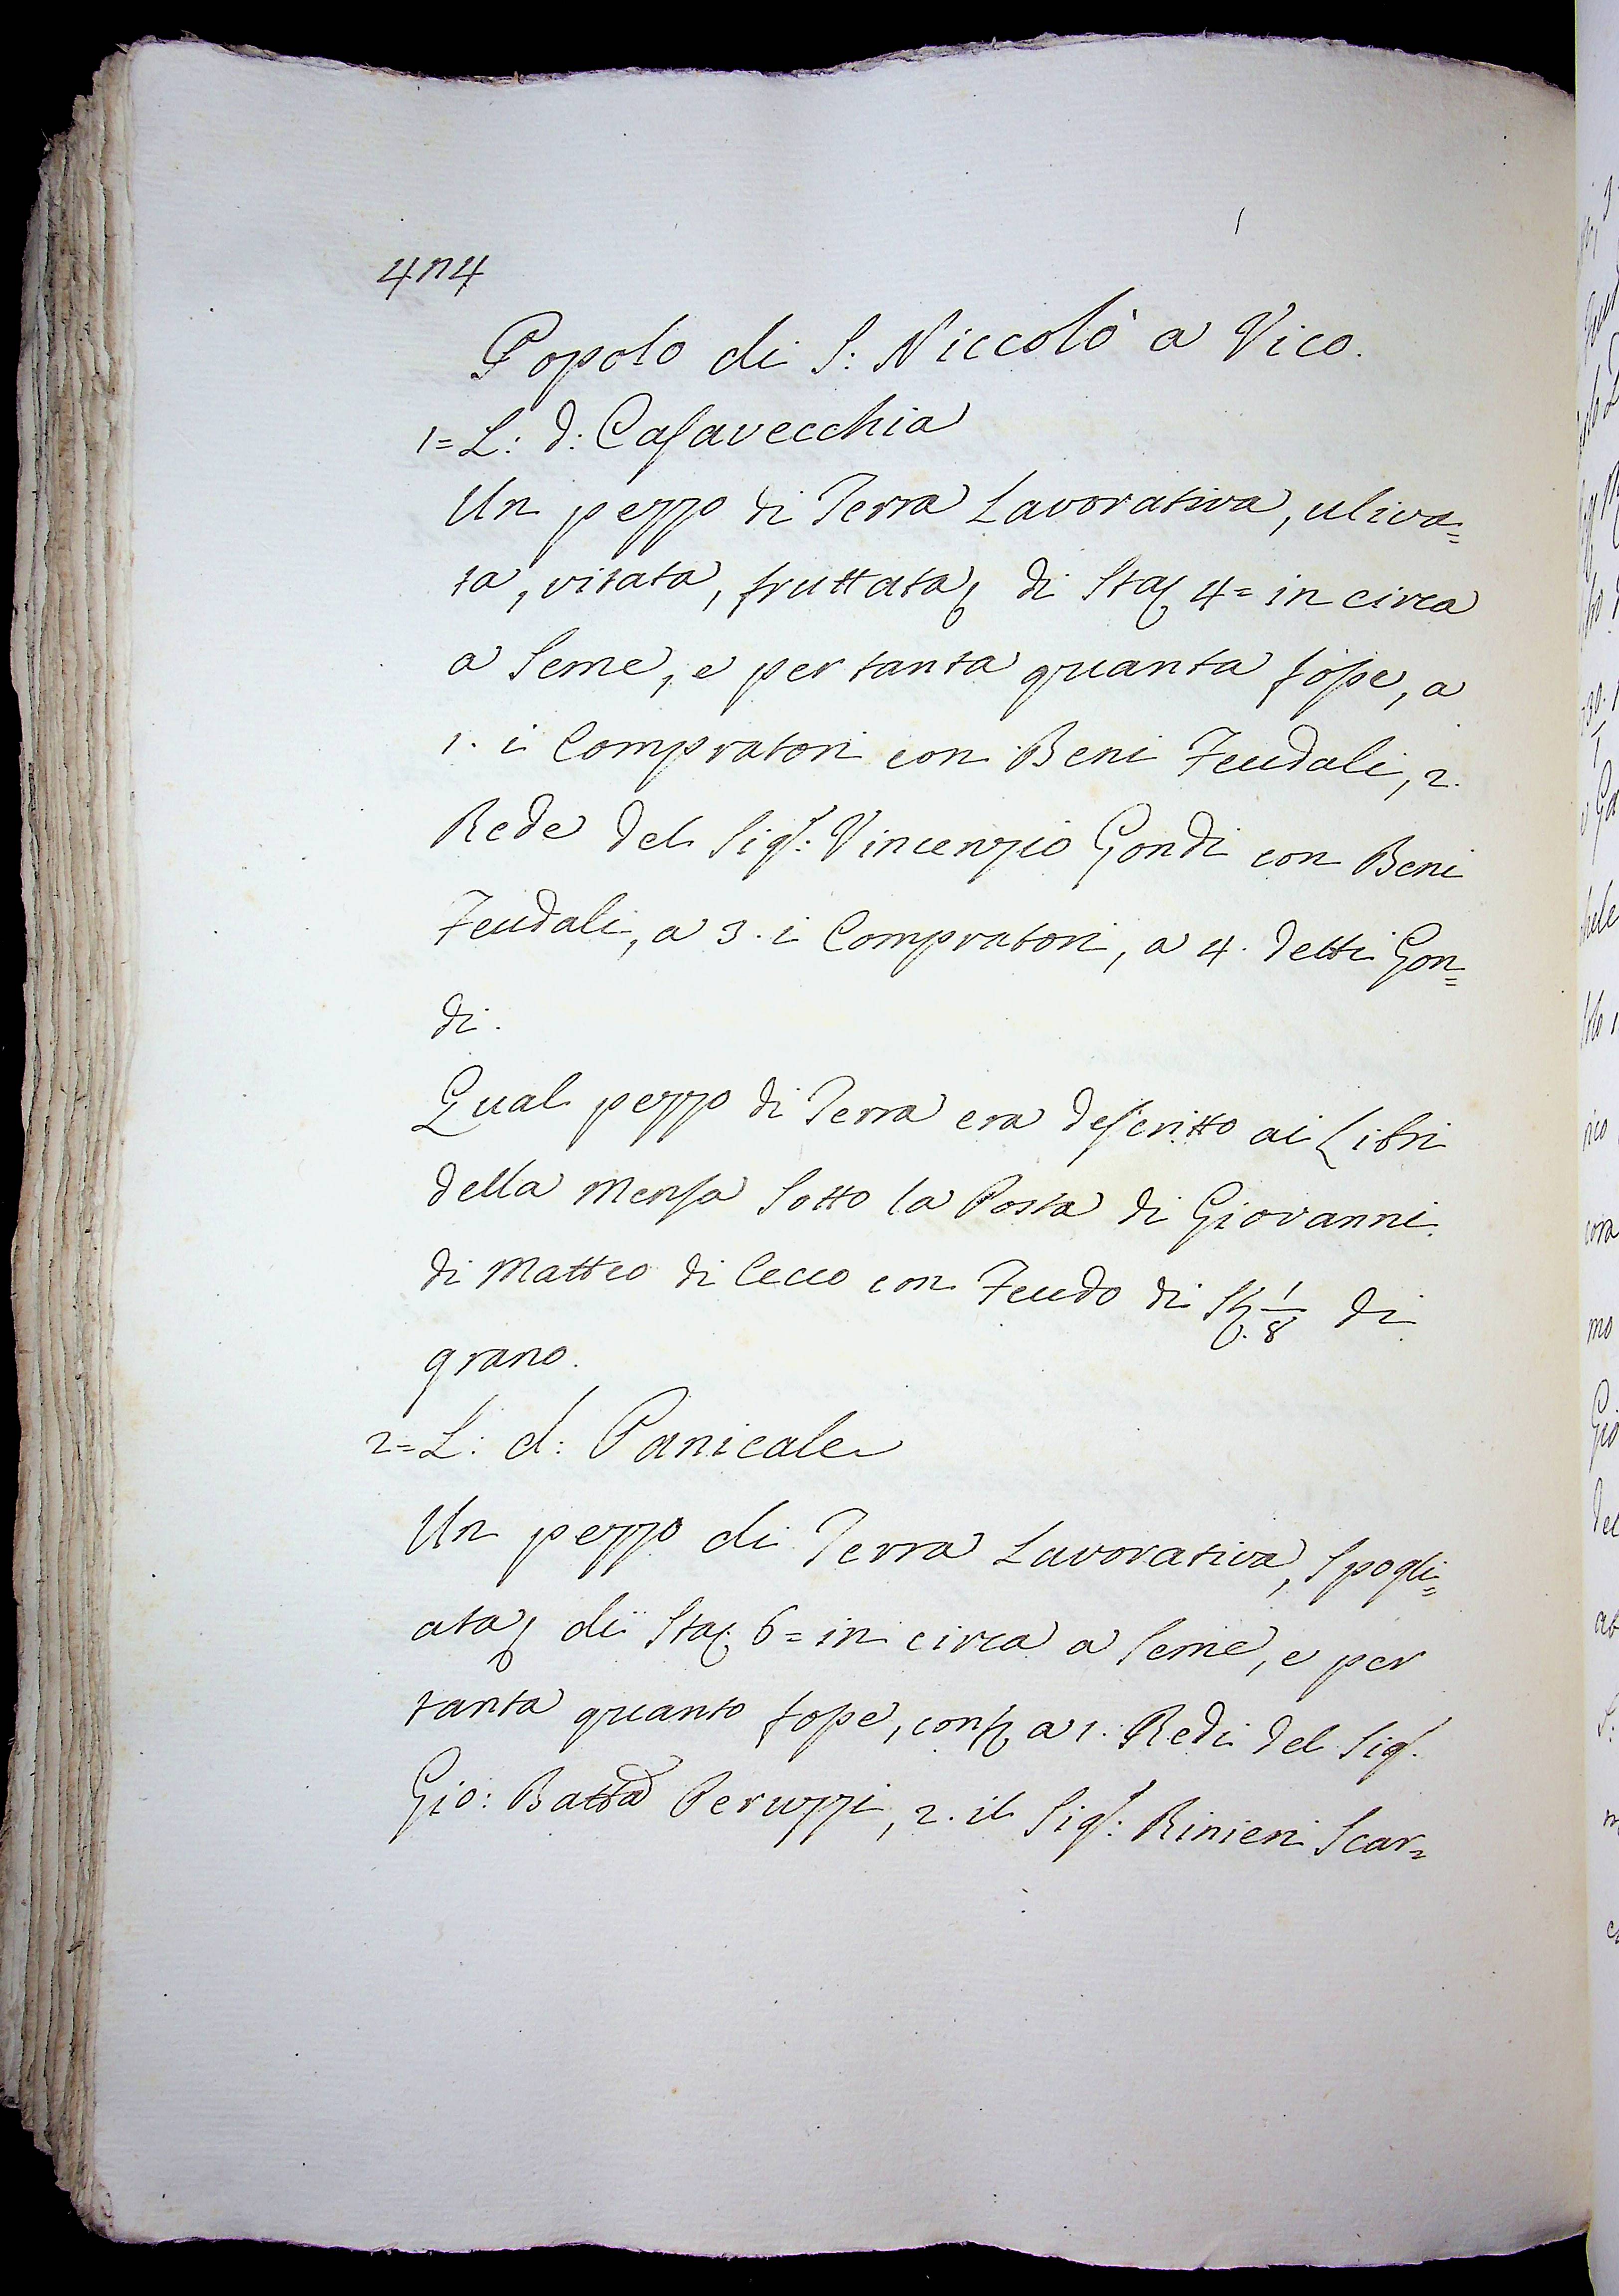 474
Popolo di S: Niccolò a Vico.
1= L: d: Casavecchia
Un pezzo di Terra Lavorativa, uliva=
ta, vitata, fruttata, di Sta 4= in circa
a Seme, e per tanta quanta fosse, a
1. i Compratori con Beni Feudali, 2.
Rede del Sigr: Vincenzio Gondi con Beni
Feudali, a 3. i Compratori, a 4. detti Gon=
di.
Qual pezzo di Terra era descritto ai Libri
della Mensa Sotto la Posta di Giovanni
di Matteo di Cecco con Feudo di St. 1/8 di
grano.
2= L: d: Panicale
Un pezzo di Terra Lavorativa, Spogli=
ata, di Sta 6= in circa a Seme, e per
tanta quanto fosse, conf. a 1. Redi del Sigr.
Gio: Batta Peruzzi, 2. il Sigr: Rinieri Scar=